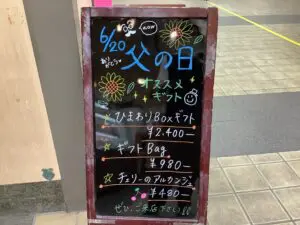 6/20
ありがとう
父の日
オススメ
ギフト
ひまわりBoxギフト
¥2.400-
☆ギフトBag
¥980-
☆チェリーのアルカンジュ
¥480-
ぜひ、ご来店下さい!!